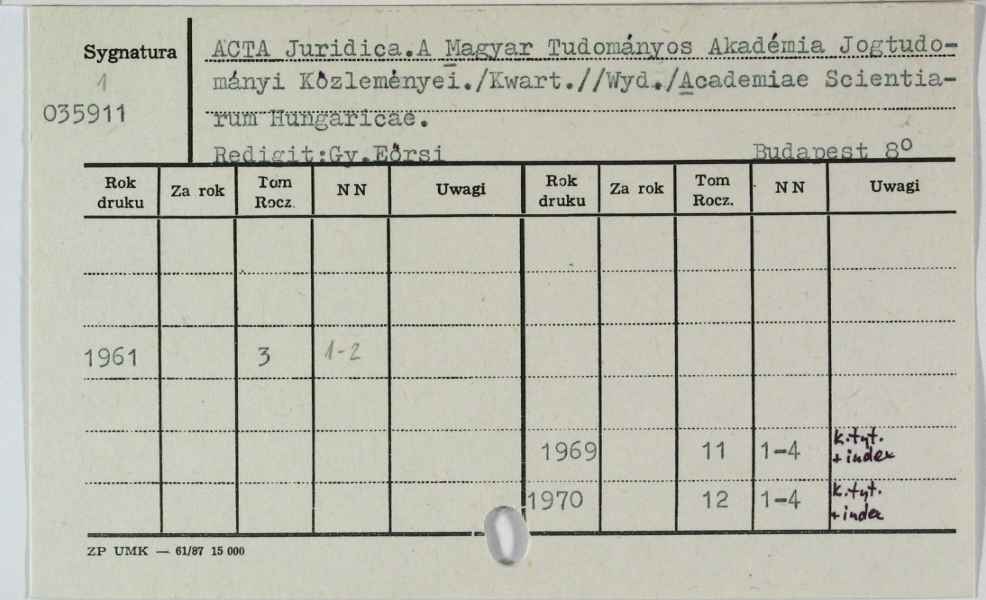 Sygnatura
1
035911
ACTA Juridica.A Magyar Tudományos Akadémia Jogtudo-
mányi Közleményei./Kwart.//Wyd./Academiae Scientia-
rum Hungaricae.
Redigit:Gy.Eörsi Budapest 8º
Rok druku Za rok Tom Rocz. N N Uwagi Rok druku Za rok Tom Rocz. N N Uwagi
1961 3 1-2
1969 11 1-4 k.tyt. + index
1970 12 1-4 k.tyt. + index
ZP UMK — 61/87 15 000